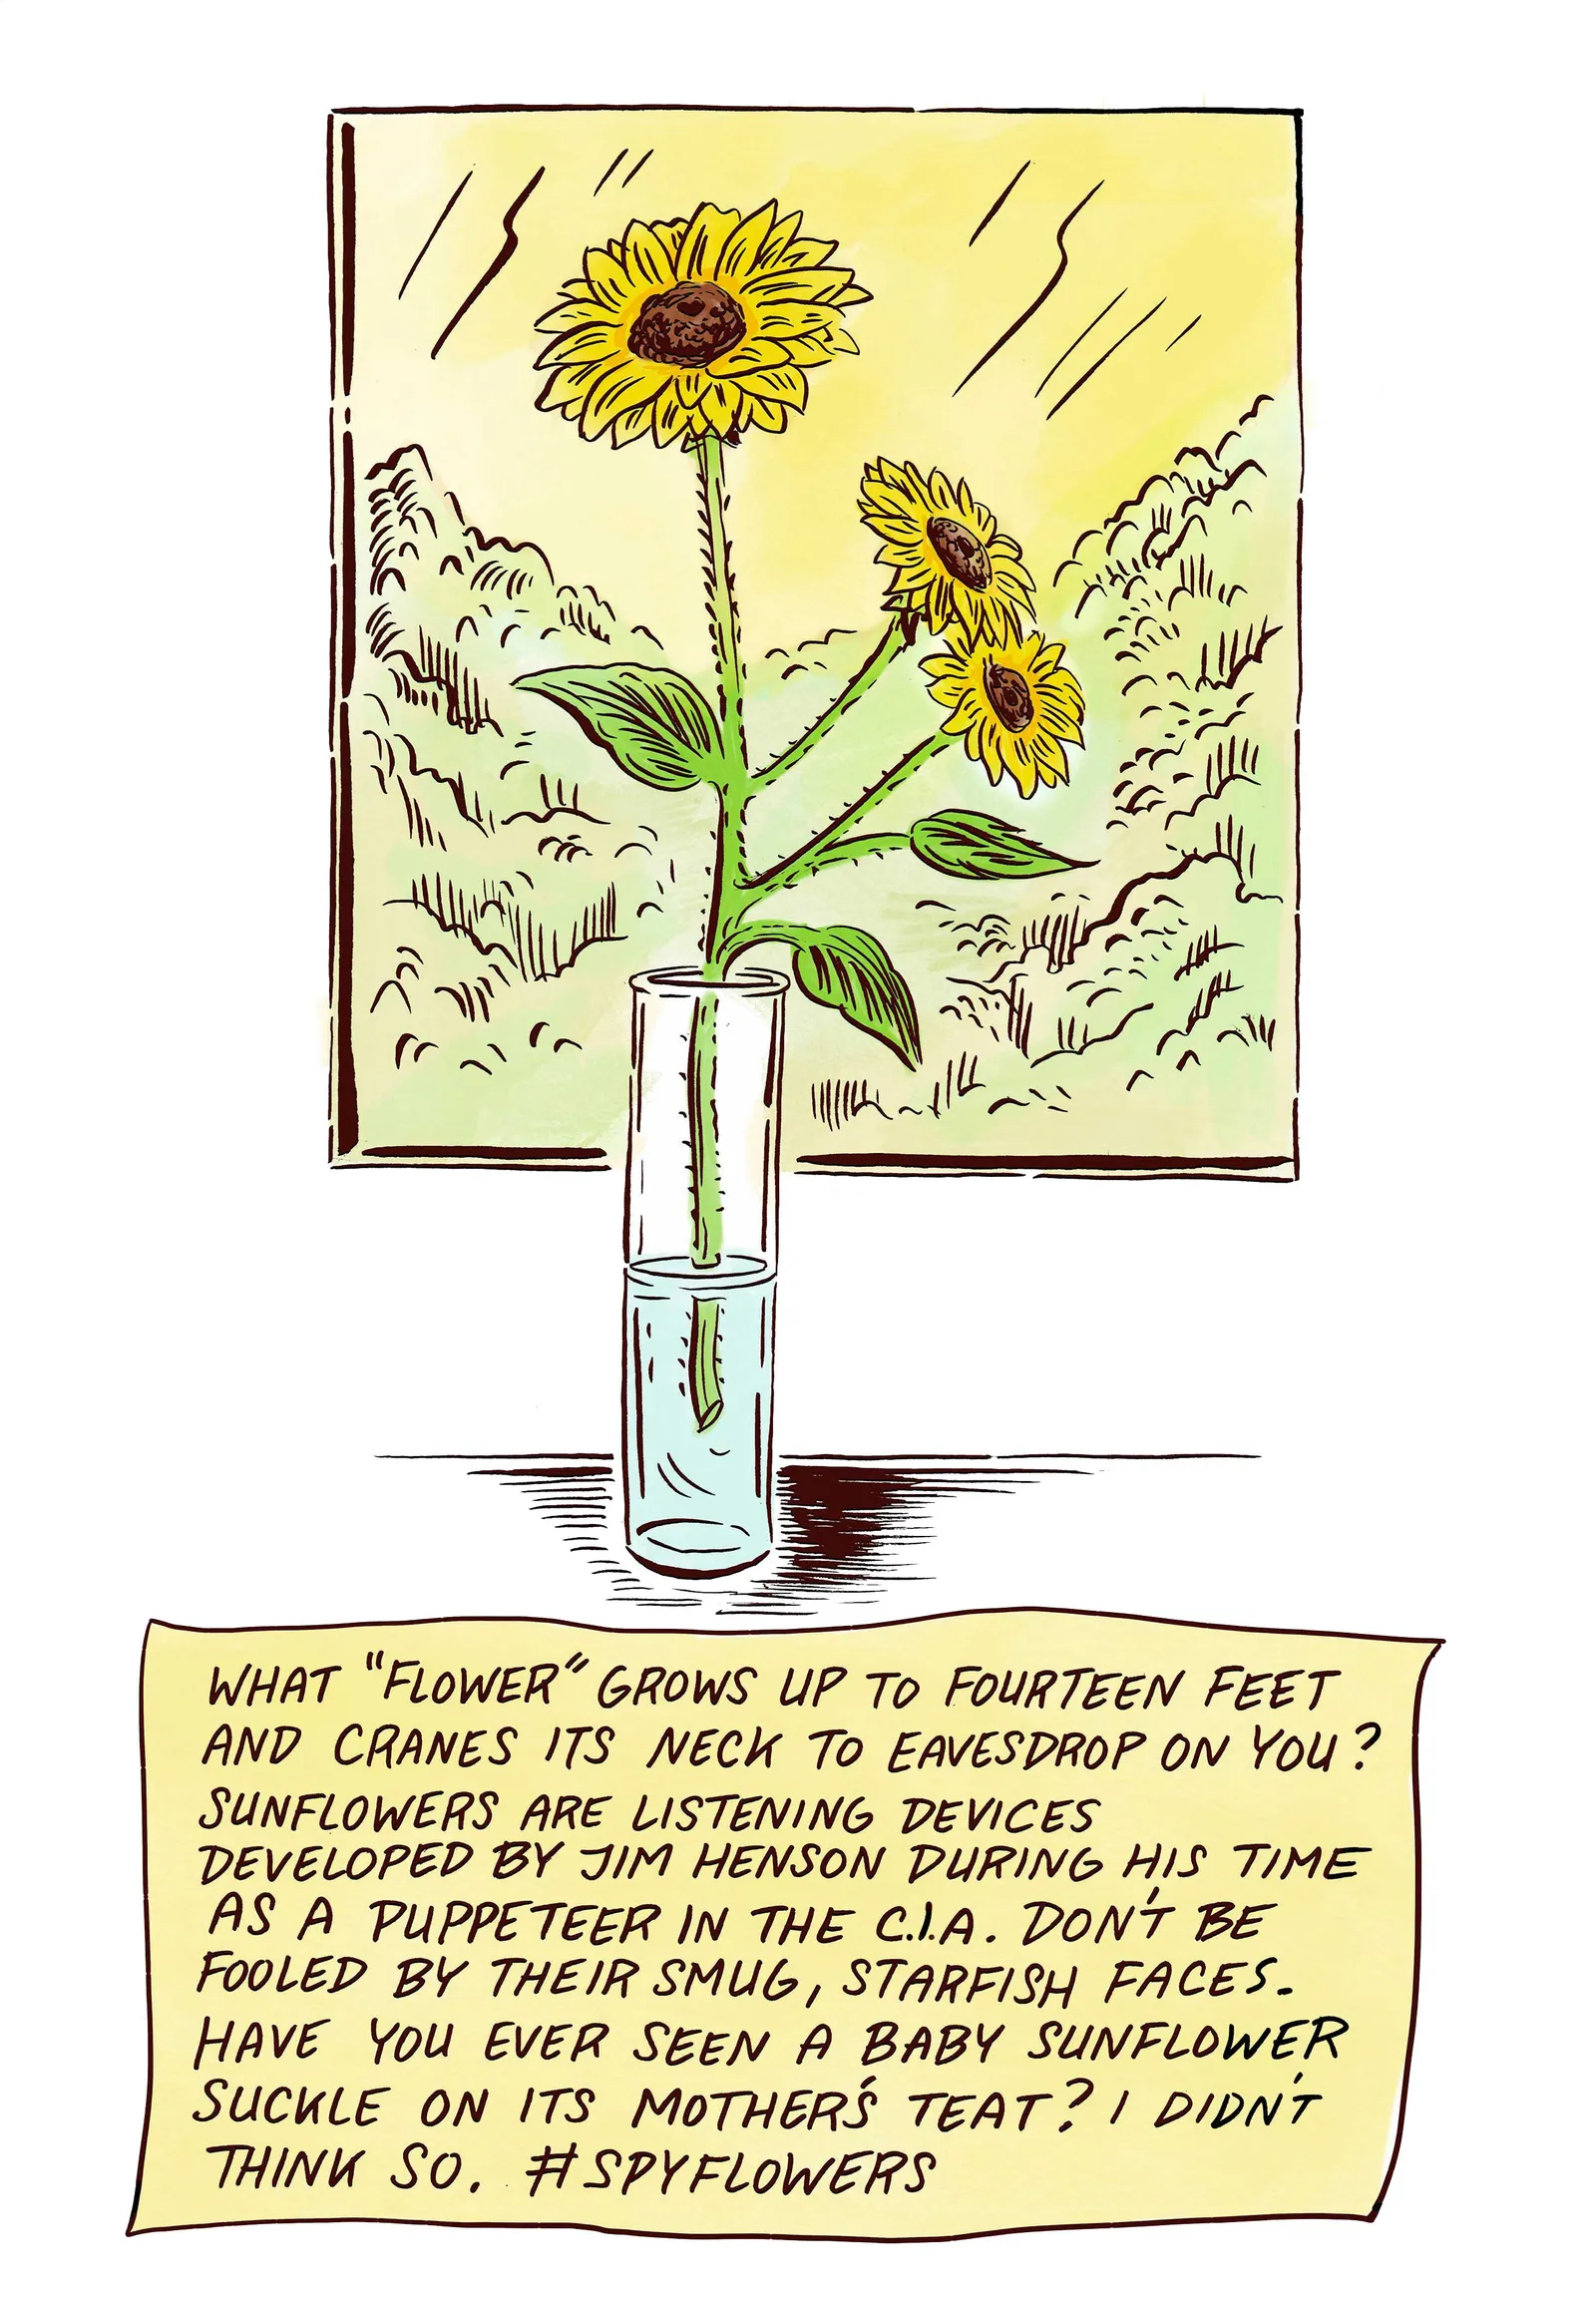 WHAT "FLOWER" GROWS UP TO FOURTEEN FEET
AND CRANES ITS NECK TO EAVESDROP ON YOU?
SUNFLOWERS ARE LISTENING DEVICES
DEVELOPED BY JIM HENSON DURING HIS TIME
AS A PUPPETEER IN THE C.I.A. DON'T BE
FOOLED BY THEIR SMUG, STARFISH FACES.
HAVE YOU EVER SEEN A BABY SUNFLOWER
SUCKLE ON ITS MOTHER'S TEAT? I DIDN'T
THINK SO. #SPYFLOWERS